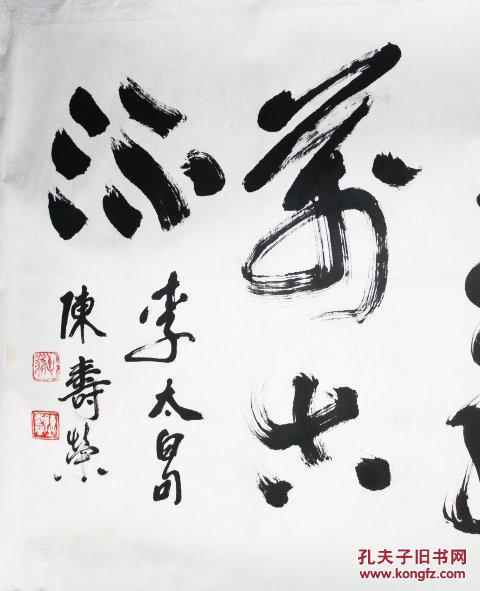 萬古
李太白句
陳壽榮
孔夫子旧书网
www.kongfz.com